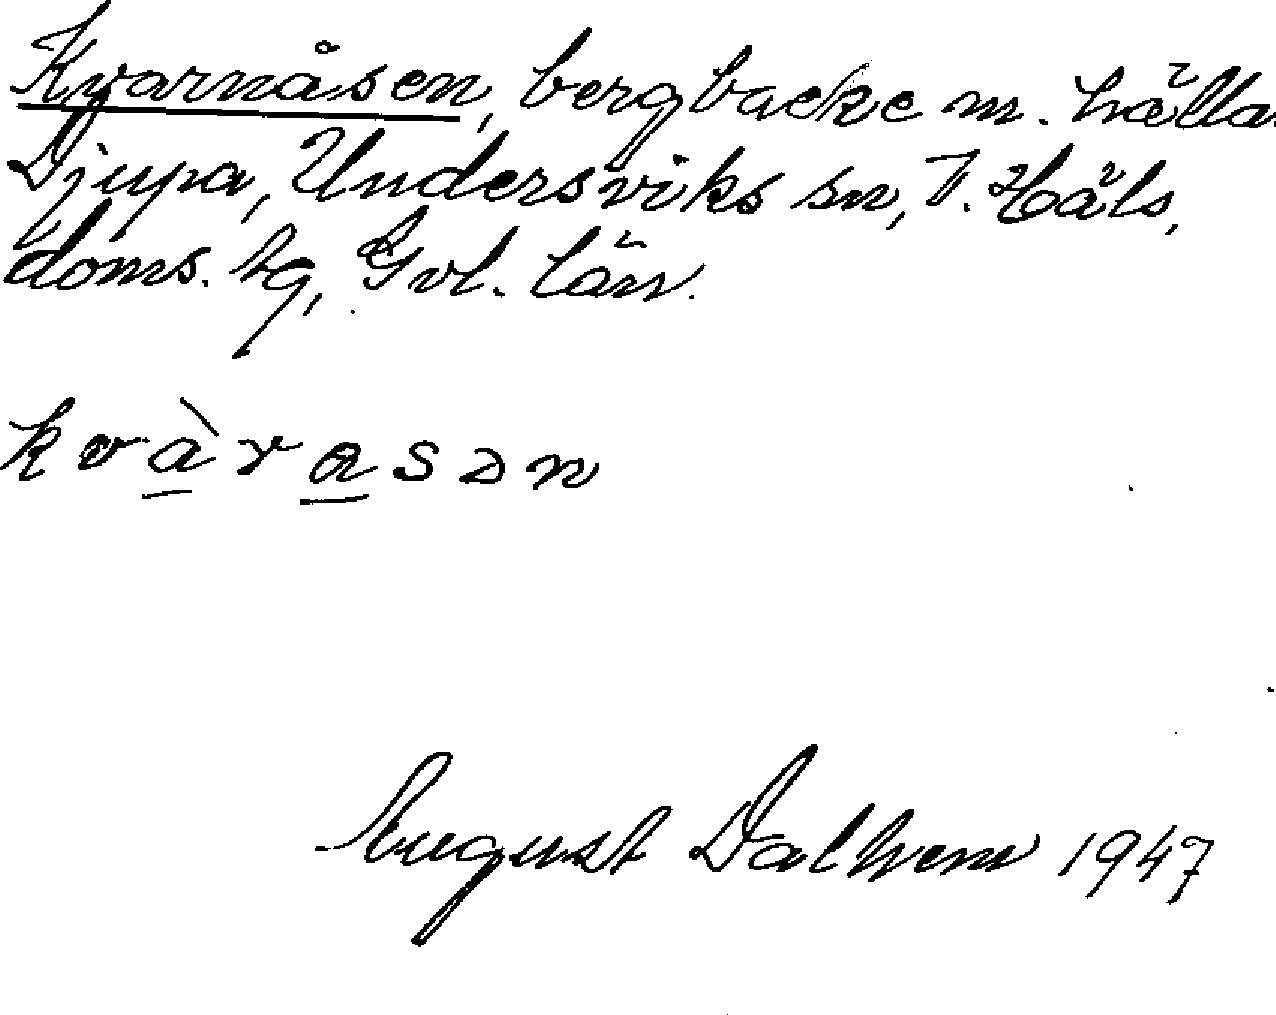 Kvarnåsen, bergbacke m. hälla.
Djupa, Undersviks sn, V. Häls.
doms. tg, Gvl. län.
kvàrasən
August Dalhem 1947